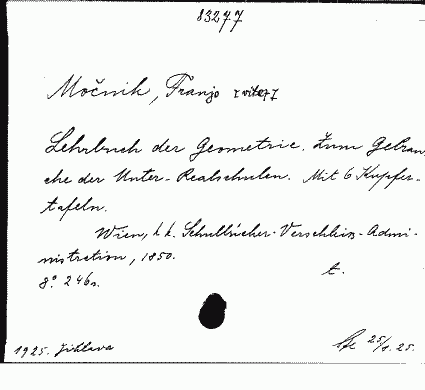 83277
Močnik, Franjo [vitez]
Lehrbuch der Geometrie. Zum Gebrau-
che der Unter-Realschulen. Mit 6 Kupfer-
tafeln.
Wien, k k. Schulbücher-Verschleiss-Admi-
nistration, 1850.
8° 246 s.
t.
1925. Jihlava
25/8. 25.